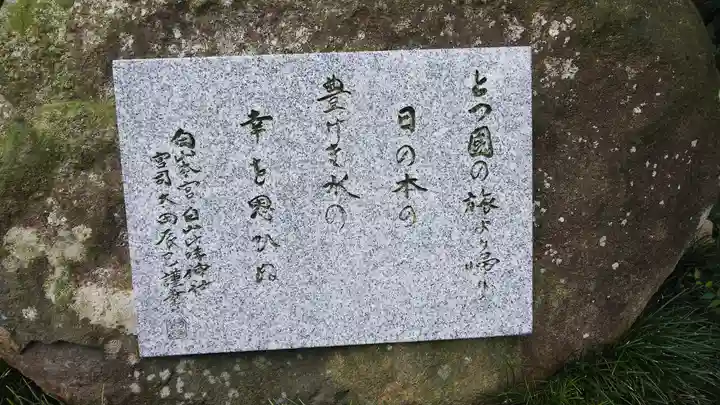 とつ國の旅より帰り
日の本の
豊けき水の
幸を思ひぬ
白峯宮白峰神社
宮司大西辰巳謹書